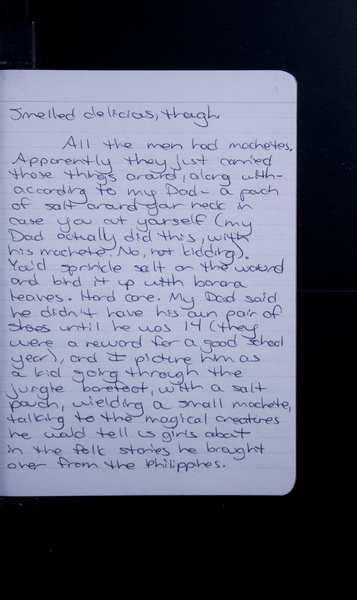 Smelled delicious, though.
All the men had machetes.
Apparently they just carried
those things around, along with -
according to my Dad - a pouch
of salt around your neck in
case you cut yourself (my
Dad actually did this, with
his machete. No, not kidding).
You'd sprinkle salt on the wound
and bind it up with banana
leaves. Hard core. My Dad said
he didn't have his own pair of
shoes until he was 14 (they
were a reward for a good school
year), and I picture him as
a kid going through the
jungle barefoot, with a salt
pouch, wielding a small machete,
talking to the magical creatures
he would tell us girls about
in the folk stories he brought
over from the Philippines.